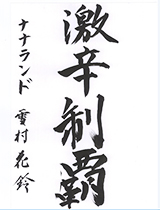 激辛制覇
ナナランド 雪村花鈴